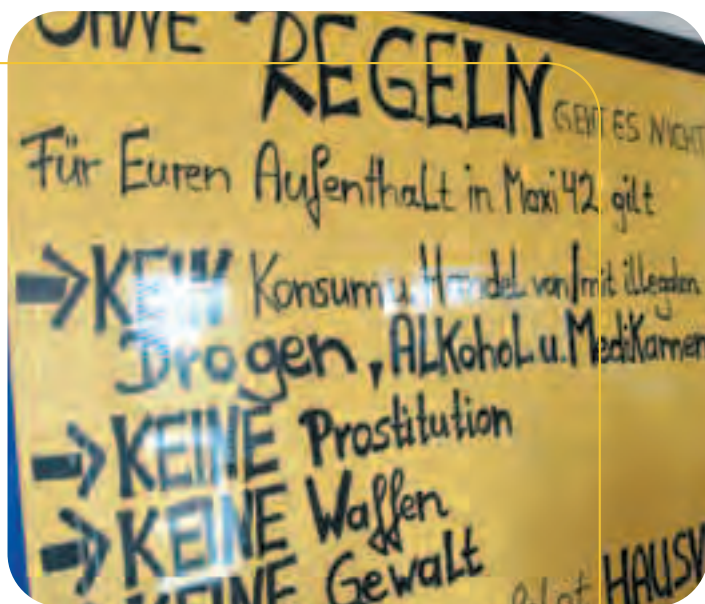 OHNE REGELN GEHT ES NICHT
Für Euren Aufenthalt in Maxi 42 gilt
KEIN Konsum u. Handel von/mit illegalen
Drogen, ALKohoL u. MediKamen
KEINE Prostitution
KEINE Waffen
KEINE Gewalt
HAUSV